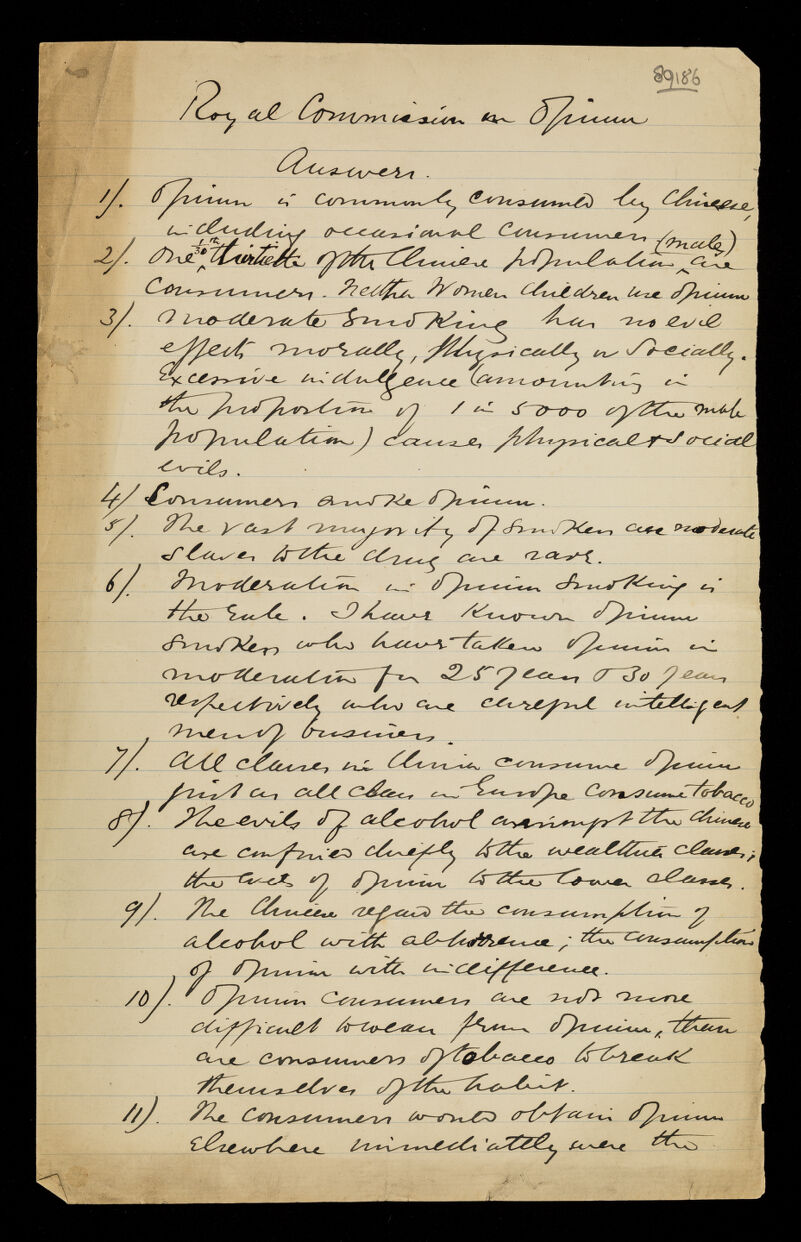 89186
Royal Commission on Opium
Answers.
1). Opium is commonly consumed by Chinese,
including occasional consumers (male)
2). One 1/30th thirtieth of the Chinese population are
consumers. Neither Women children use opium
3). Moderate smoking has no evil
effects morally, Physically or Socially.
Excessive indulgence (amounting in
the proportion of 1 in 5000 of the male
population) causes physical & Social
evils.
4) Consumers smoke opium.
5). The vast majority of smokers are moderate
slaves to the drug are rare.
6). Moderation in opium smoking is
the rule. I have Known opium
smokers who have taken opium in
moderation for 25 years & 30 years
respectively who are careful intelligent
men of business.
7). All classes in China consume opium
just as all class in Europe consume tobacco
8). The evils of alcohol amongst the Chinese
are confined chiefly to the wealthier classes;
the evils of opium to the lower classes.
9). The Chinese regard the consumption of
alcohol with abhorrence; the consumption
of opium with indifference.
10). Opium consumers are not more
difficult to wean from opium, than
are consumers of tobacco to break
themselves of the habit.
11). The consumers would obtain opium
Elsewhere immediately were the